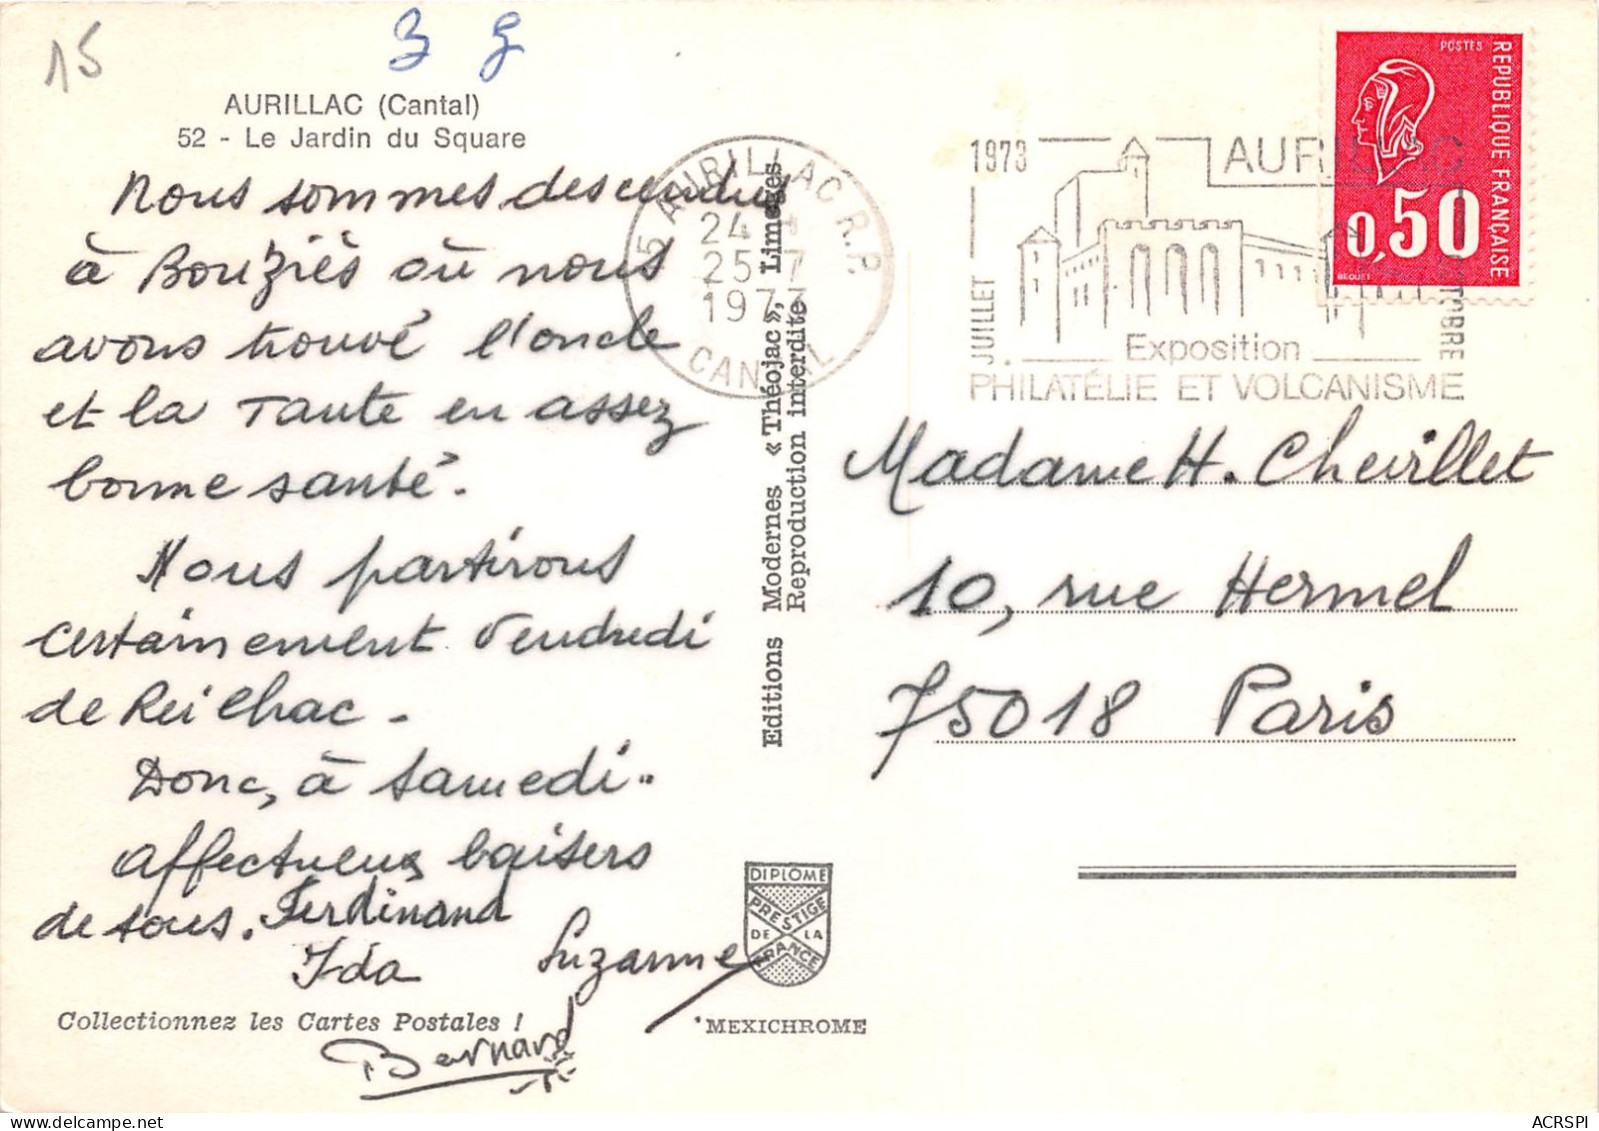 15
3 G
AURILLAC (Cantal)
52 - Le Jardin du Square
Nous sommes descendus
à Bouziès où nous
avons trouvé l'oncle
et la Tante en assez
bonne santé.
Nous partirons
certainement Vendredi
de Reilhac -
Donc, à samedi..
affectueux baisers
de tous. Ferdinand
Ida Suzanne
Bernard
Collectionnez les Cartes Postales !
Editions Modernes « Théojac », Limoges
Reproduction interdite
DIPLOME
PRESTIGE
DE LA
FRANCE
*MEXICHROME
15 AURILLAC R.P.
24 H
25-7
1973
CANTAL
1973 AURILLAC
JUILLET OCTOBRE
Exposition
PHILATÉLIE ET VOLCANISME
POSTES
REPUBLIQUE FRANÇAISE
0,50
BEQUET
Madame H. Chevillet
10, rue Hermel
75018 Paris
ACRSPI